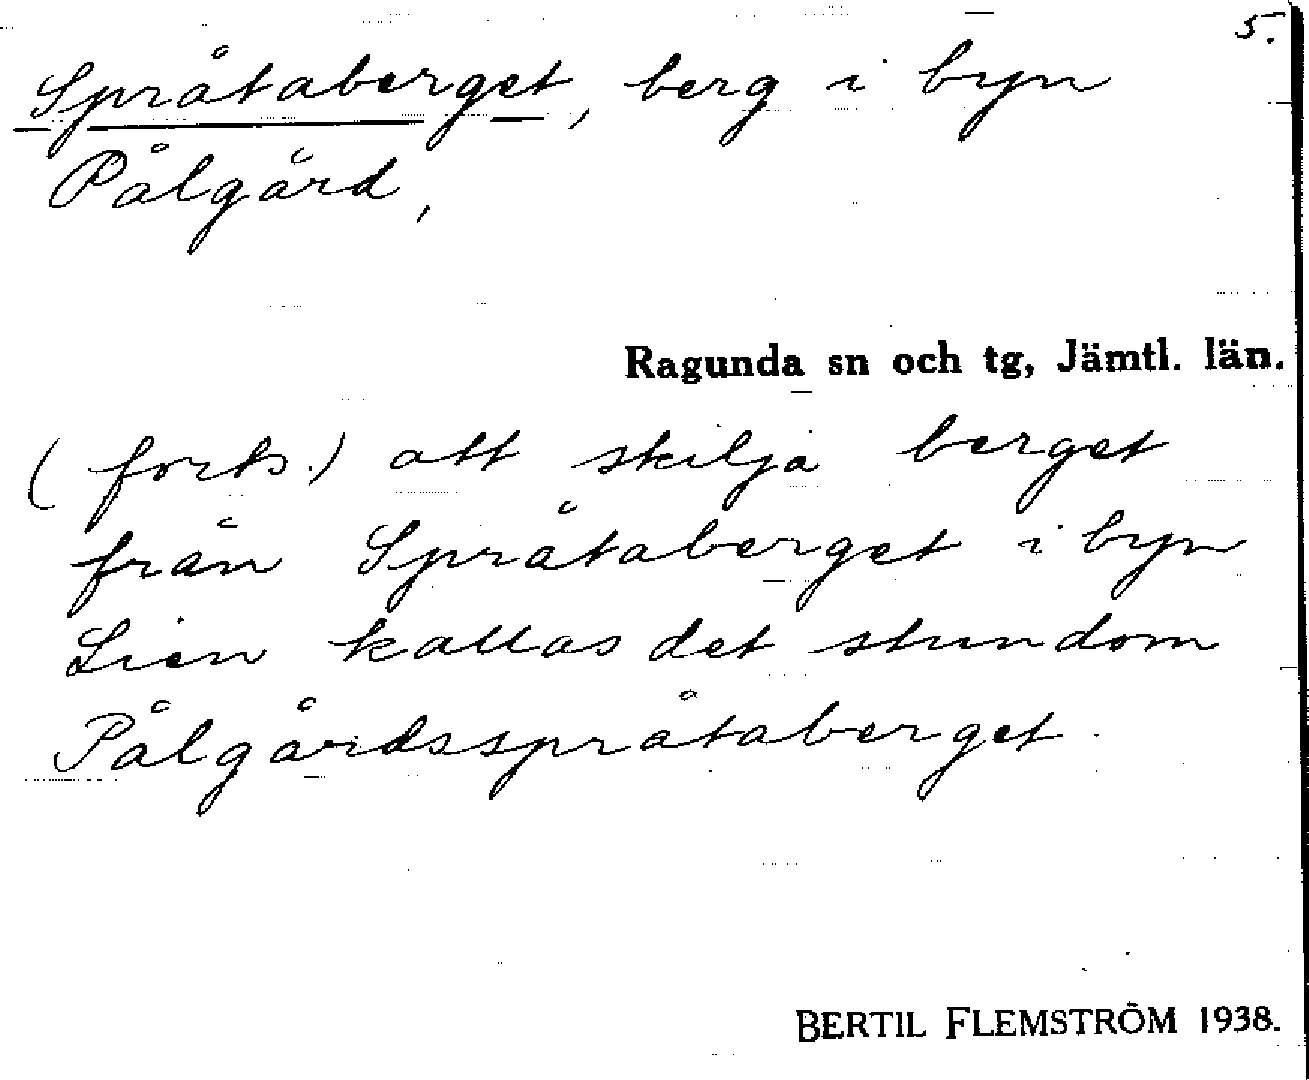 5.
Språtaberget, berg i byn
Pålgård,
Ragunda sn och tg, Jämtl. län.
(forts.) att skilja berget
från Språtaberget i byn
Lien kallas det stundom
Pålgårdsspråtaberget.
BERTIL FLEMSTRÖM 1938.